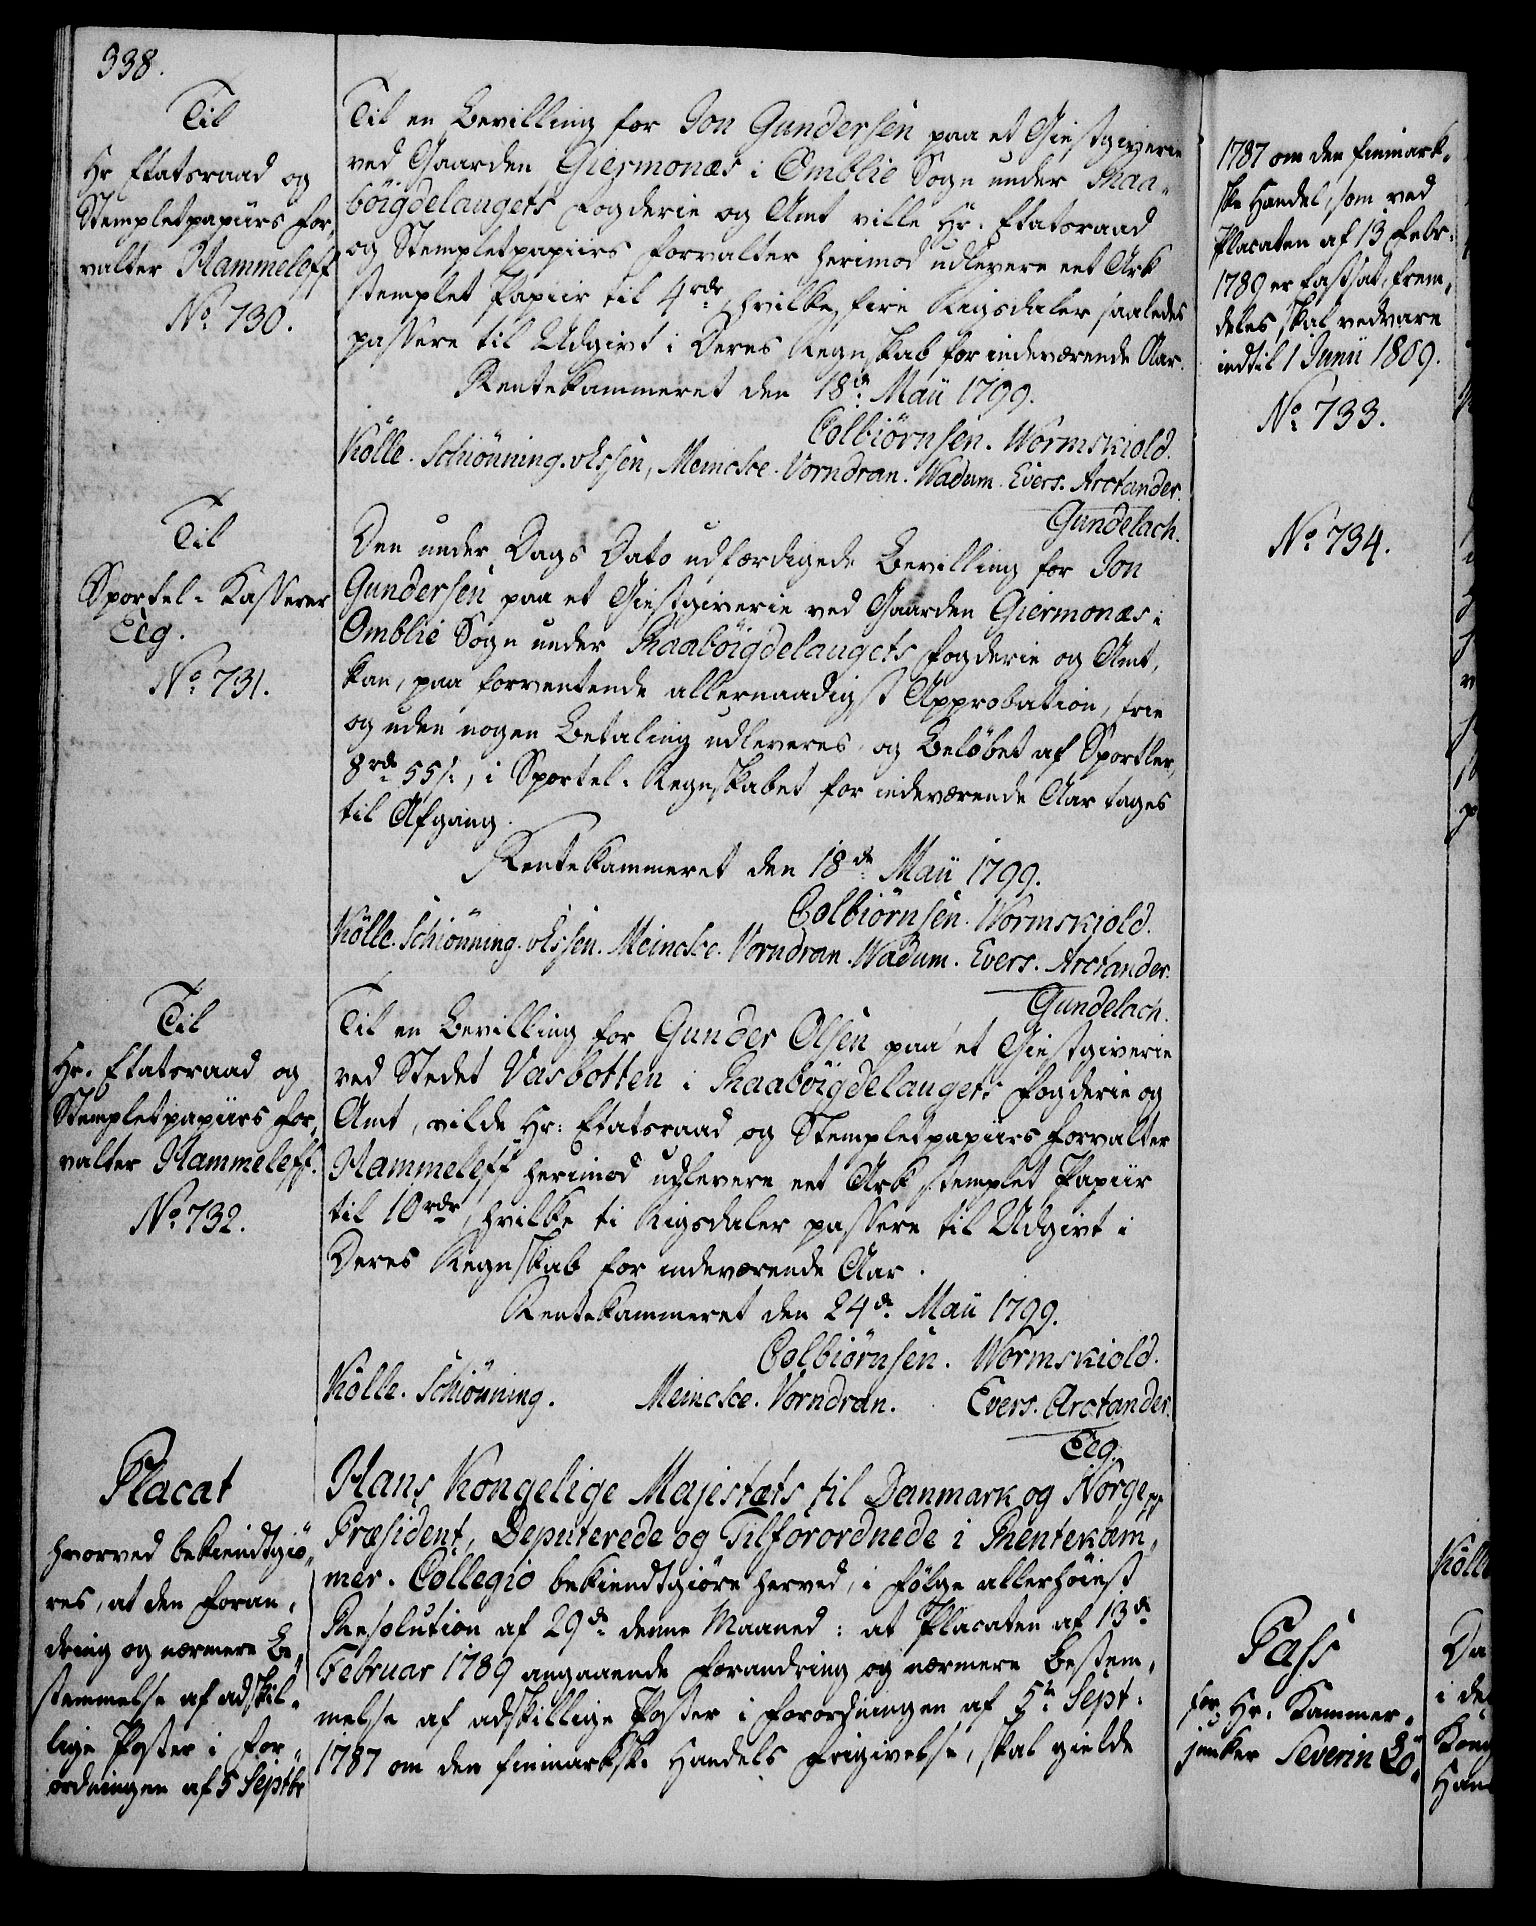 338.
Til
Hr Etatsraad og
Stempletpapiirs for,
valter Hammeleff
No. 730.
Til en Bevilling for Jon Gundersen paa et Giestgiverie
ved Gaarden Giermonæs i Omblie Sogn under Raa-
böigdelaugets Fogderie og Amt ville Hr. Etatsraad
og Stempletpapiirs Forvalter herimod udlevere eet Ark
stemplet Papiir til 4 rdr, hvilke fire Rigsdaler saaledes
passere til Udgivt i Deres Regnskab for indeværende Aar.
Rentekammeret den 18de Maii 1799.
Colbiörnsen. Wormskiold.
Kölle. Schiönning. Essen, Meincke. Vorndran. Wadum. Evers. Arctander.
Gundelach.
Til
Sportel-Kasserer
Eeg.
No. 731.
Den under Dags Dato udfærdigede Bevilling for Jon
Gundersen paa et Giestgiverie ved Gaarden Giermonæs i
Omblie Sogn under Raaböigdelaugets Fogderie og Amt,
kan, paa forventende allernaadigst Approbation, frie
og uden nogen Betaling udleveres, og Belöbet af Sportler,
8 rd 55 s:, i Sportel-Regnskabet for indeværende Aar tages
til Afgang.
Rentekammeret den 18de Maii 1799.
Colbiörnsen. Wormskiold.
Kölle. Schiönning. Essen. Meincke. Vorndran. Wadum. Evers. Arctander.
Gundelach.
Til
Hr. Etatsraad og
Stempletpapiirs for,
valter Hammeleff.
No. 732.
Til en Bevilling for Gunder Olsen paa et Giestgiverie
ved Stedet Vasbotten i Raaböigdelaugets Fogderie og
Amt, vilde Hr: Etatsraad og Stempletpapiirs Forvalter
Hammeleff herimod udlevere eet Ark stemplet Papiir
til 10 rdr, hvilke ti Rigsdaler passere til Udgivt i
Deres Regnskab for indeværende Aar.
Rentekammeret den 24de Maii 1799.
Colbiörnsen. Wormskiold.
Kölle. Schiönning. Meincke. Vorndran. Evers. Arctander.
Eeg.
Placat
hvorved bekiendtgiö,
res, at den Foran,
dring og nærmere Be,
stemmelse af adskil-
lige Poster i For,
ordningen af 5 Septbr
Hans Kongelige Majestæts til Danmark og Norge
Præsident, Deputerede og Tilforordnede i Rentekam,
mer-Collegio bekiendtgiöre herved, i Fölge allerhöiest
Resolution af 29de denne Maaned: at Placaten af 13de
Februar 1789 angaaende Forandring og nærmere Bestem,
melse af adskillige Poster i Forordningen af 5te Sept:
1787 om den finmarkske Handels Frigivelse, skal gielde
1787 om den finmark,
ske Handel, som ved
Placaten af 13 Febr:
1789 er fastsat, frem,
deles skal vedvare
indtil 1 Junii 1809.
No. 733.
No. 734.
Pass
for Hr. Kammer,
junker Severin Lö,
Kölle
Da
i de